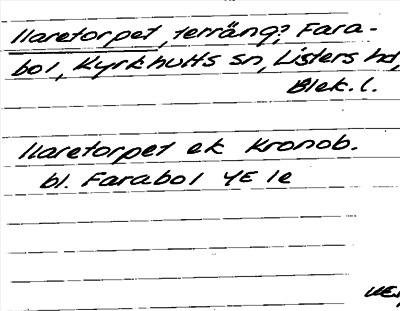 Ilaretorpet, terräng? Fara-
bol, Kyrkhults sn, Listers hd,
Blek. l.
Ilaretorpet ek Kronob.
bl. Farabol 4E 1e